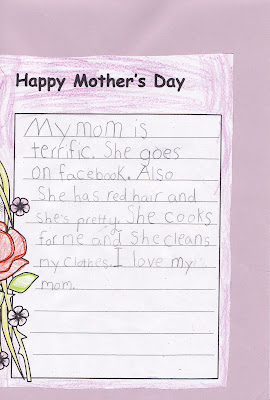 Happy Mother's Day
My mom is
terrific. She goes
on facebook. Also
She has red hair and
she's pretty. She cooks
for me and She cleans
my clothes. I love my
mom.